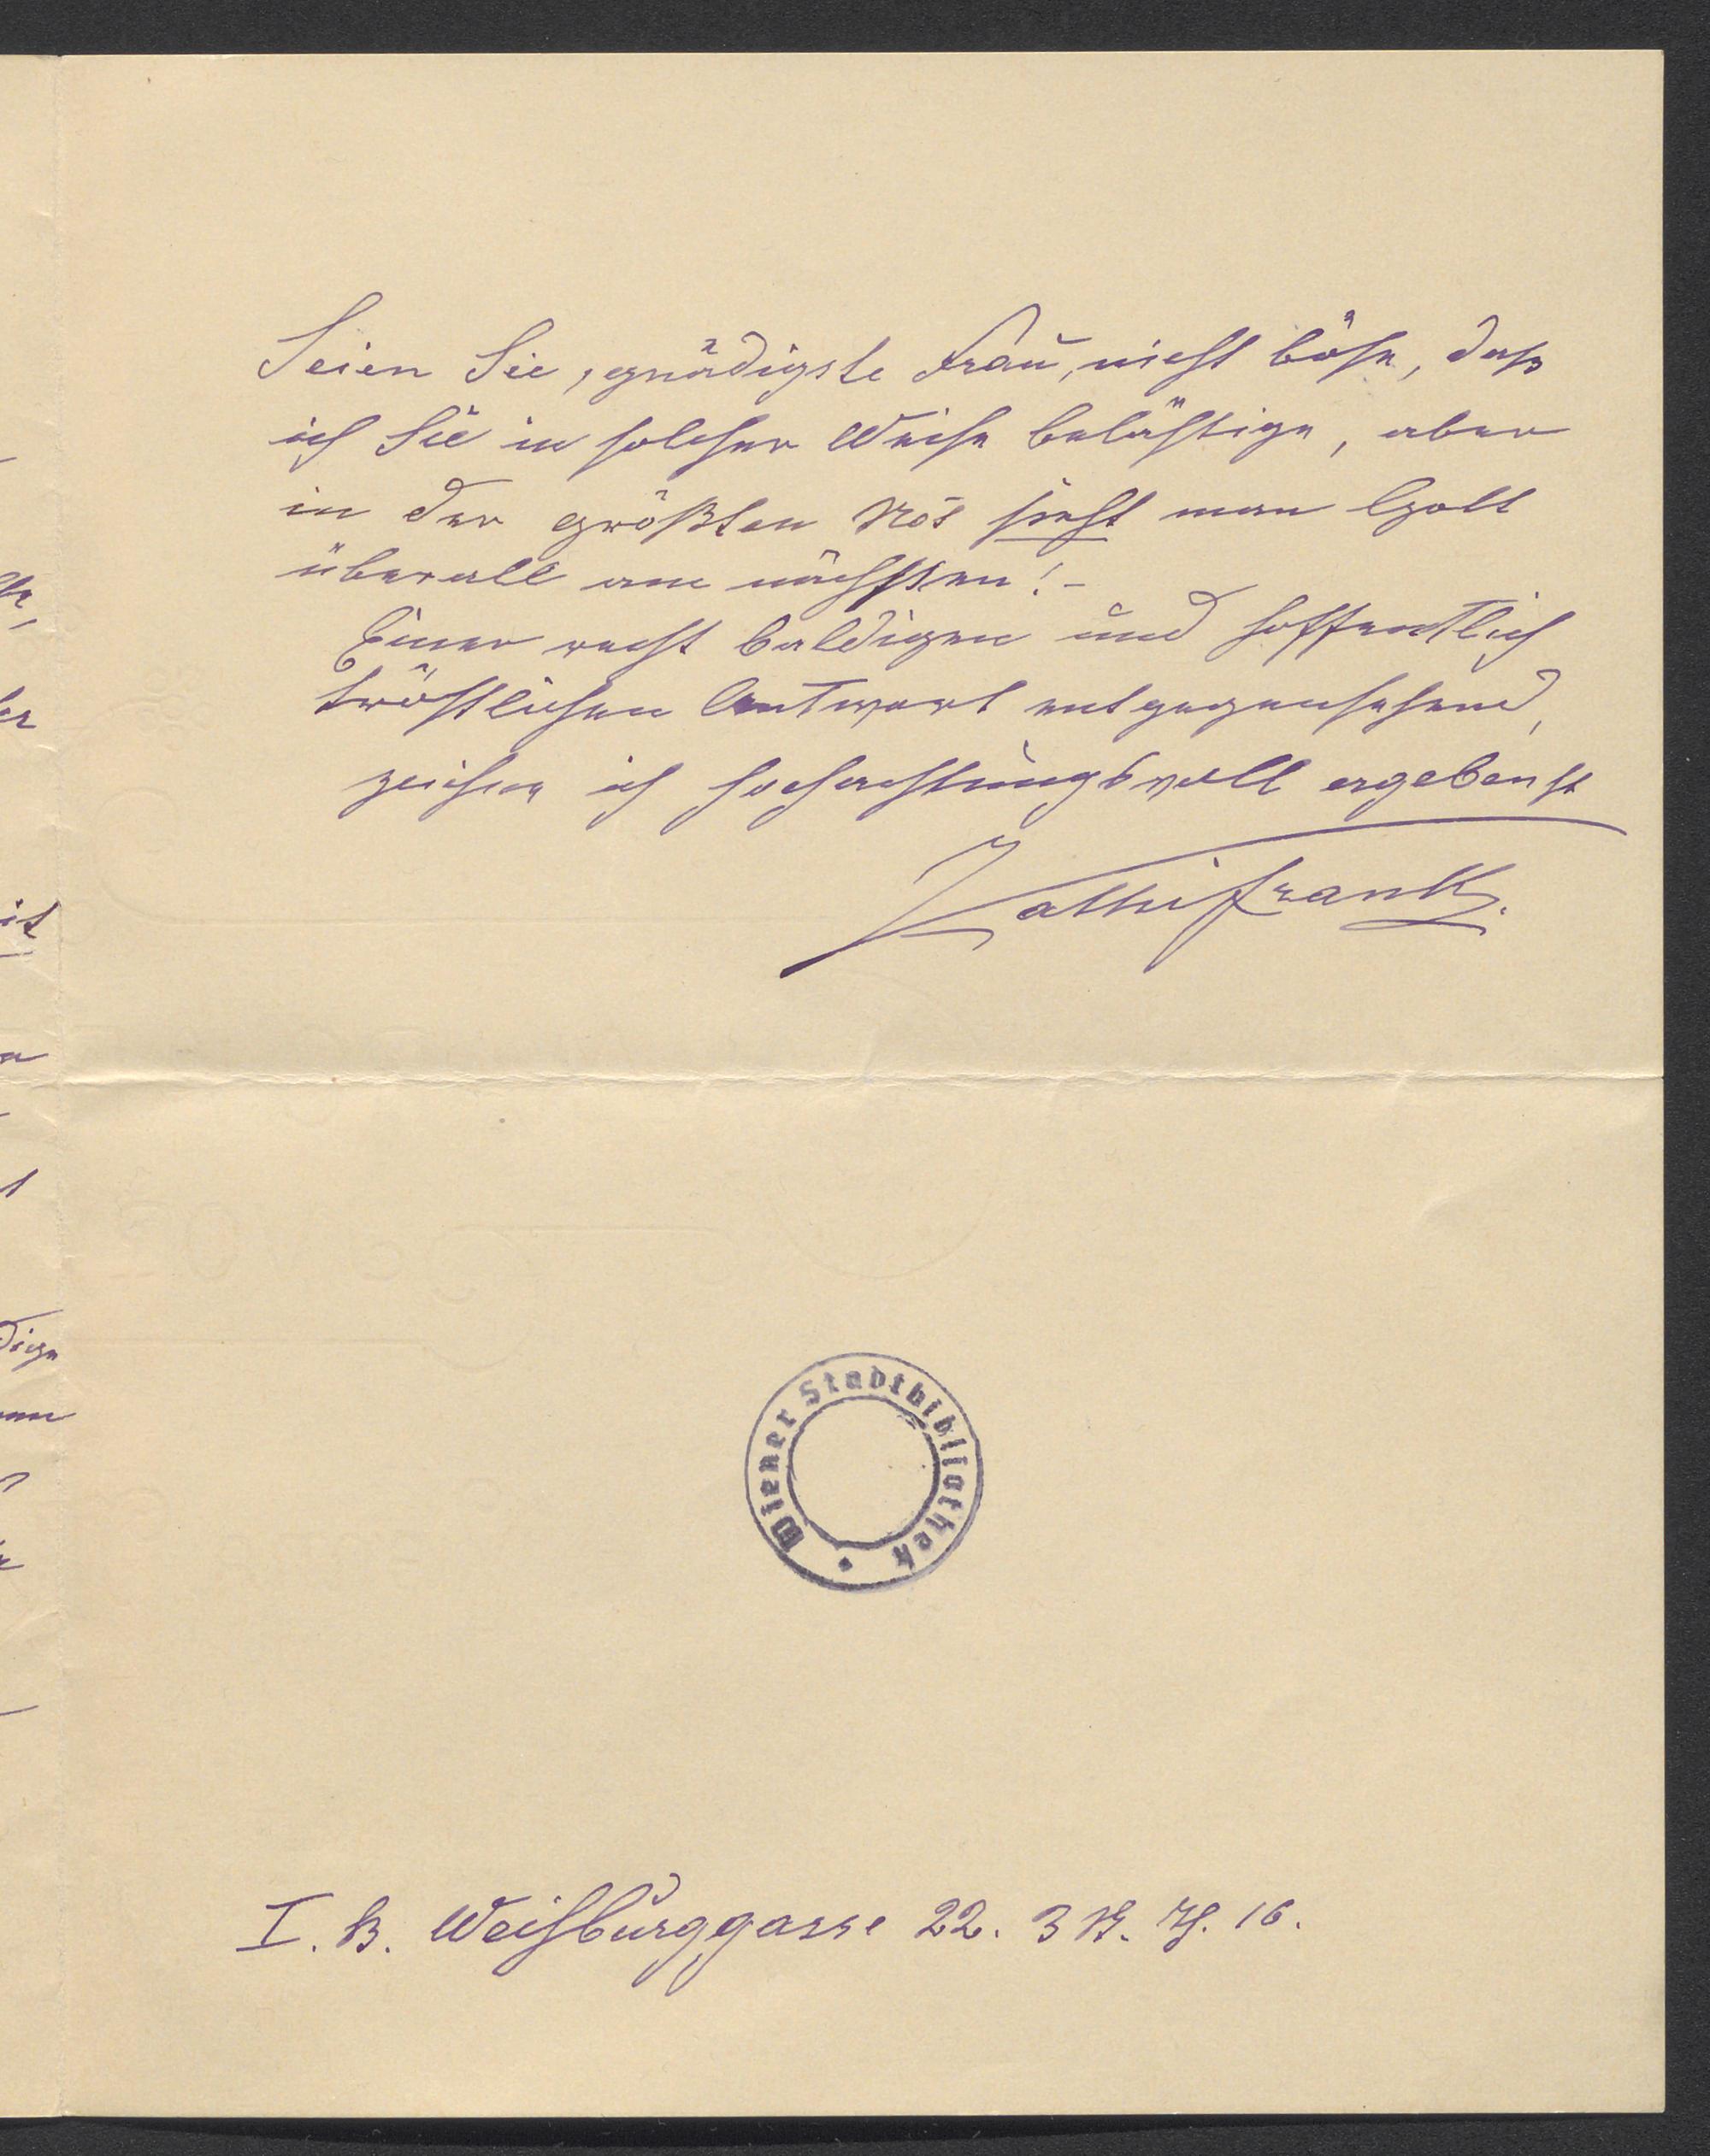 Seien Sie, gnädigste Frau, nicht böse, dass
ich Sie in solcher Weise belästige, aber
in der größten Not sieht man Gott
überall am nächsten! –
Einer recht baldigen und hoffentlich
tröstlichen Antwort entgegensehend,
zeichne ich hochachtungsvoll ergebenst
Kathi Frank.
Wiener Stadtbibliothek
I. B. Weihburggasse 22. 3 St. Th. 16.